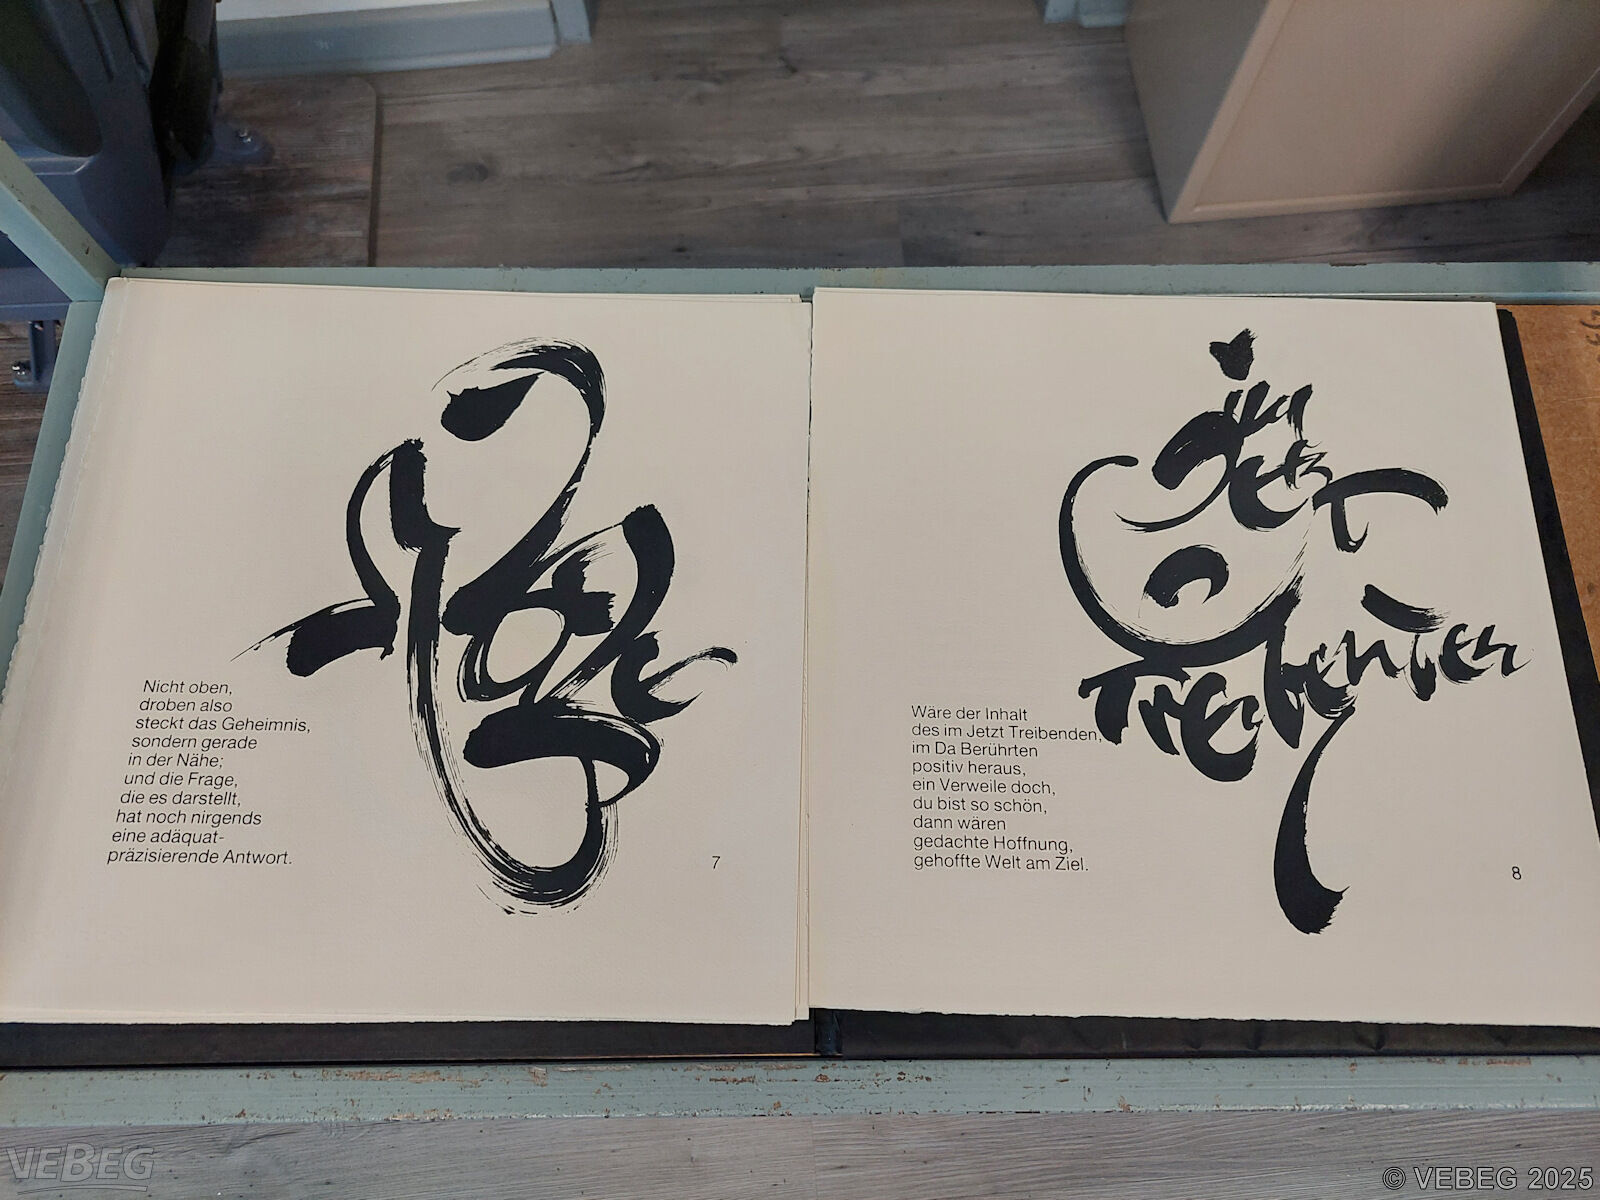 Nicht oben,
droben also
steckt das Geheimnis,
sondern gerade
in der Nähe;
und die Frage,
die es darstellt,
hat noch nirgends
eine adäquat-
präzisierende Antwort.
7
im
Jetzt
Treibenden
Wäre der Inhalt
des im Jetzt Treibenden,
im Da Berührten
positiv heraus,
ein Verweile doch,
du bist so schön,
dann wären
gedachte Hoffnung,
gehoffte Welt am Ziel.
8
VEBEG
© VEBEG 2025